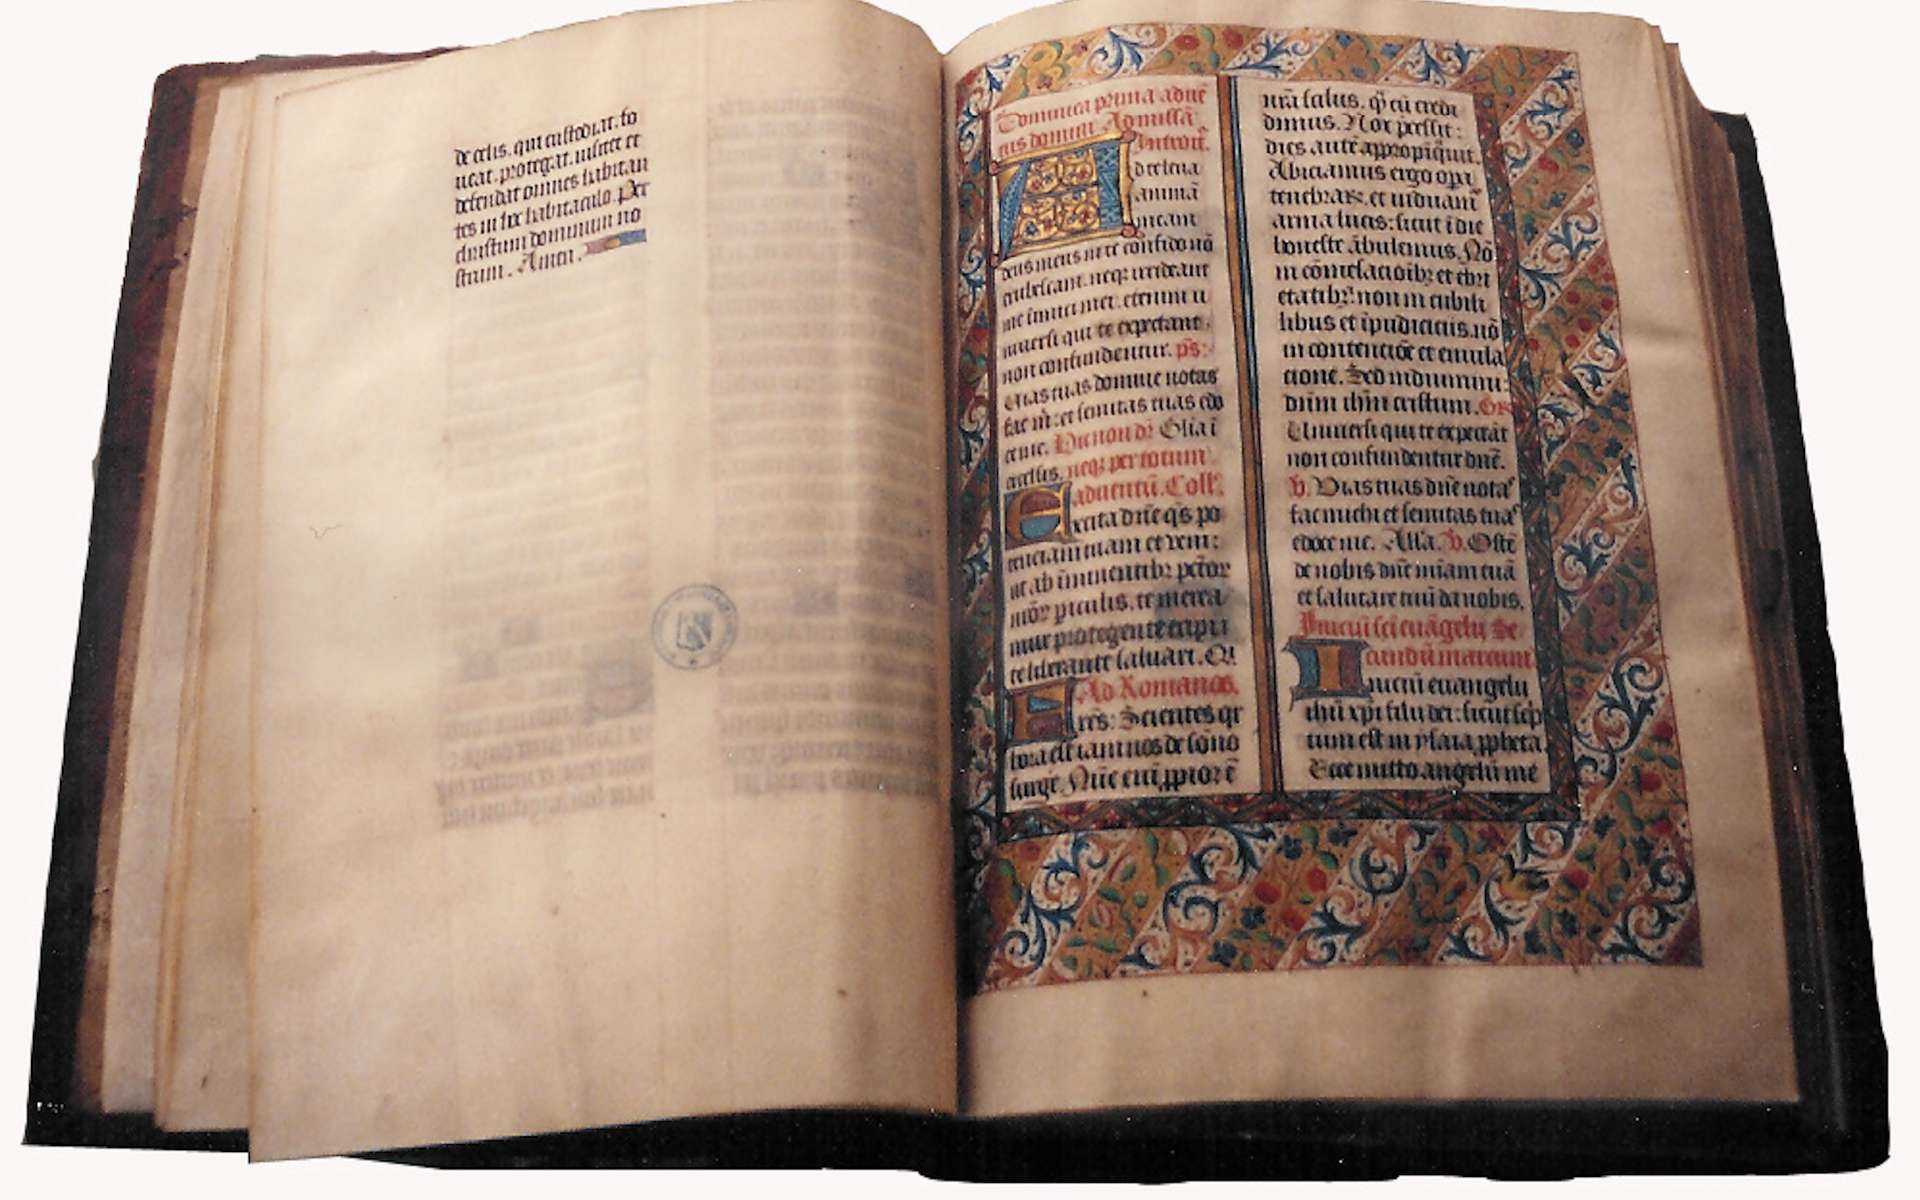 de celis. qui custodiat. fo
ueat. protegat. uisitet et
defendat omnes habitan
tes in hoc habitaculo. Per
christum dominum no
strum. Amen.
Dominica prima aduē
tus domini Ad missā
Introit.
Ad te leua
ui animā
meam
deus meus in te confido nō
erubescam. neqꝫ irrideant
me inimici mei. etenim u
niuersi qui te expectant
non confundentur. p̄s:
Uias tuas domine notas
fac m̄: et semitas tuas edo
ce me. Hic non dr̄ Glīa ī
excelsis. neqꝫ per totum
aduentū. Coll'.
Excita dn̄e q̄s po
tenciam tuam et veni:
ut ab īminentibꝫ pctōꝝ
nr̄oꝝ piculis. te merea
mur protegente eripi
te liberante saluari. Qi
Ad Romanos.
Frēs: Scientes qr
hora est iam nos de sōno
surge. Nūc eni ꝓpior ē
nr̄a salus. q̄ cū credi
dimus. Nox pcessit:
dies autē appropīquit.
Abiciamus ergo opa
tenebraꝝ. et induam
arma lucis: sicut ī die
honeste ābulemus. Nō
in cōmesacioībꝫ et ebri
etatibꝫ. non in cubili
libus et īpudiciciis. nō
in contencioē et emula
cione. Sed induimini:
dūm ihm cristum. Gr
Uniuersi qui te expectāt
non confundentur dn̄e.
v. Uias tuas dn̄e nota
fac michi et semitas tua
edoce me. Alla. v. Oste
de nobis dn̄e miam tuā
et salutare tuū da nobis.
Iniciū sci euāgelii Se
cundū marcum
Iniciū euangelii
ihū xpi filii dei: sicut scp
tum est in ysaia ꝓpheta
Ecce mitto angelū me